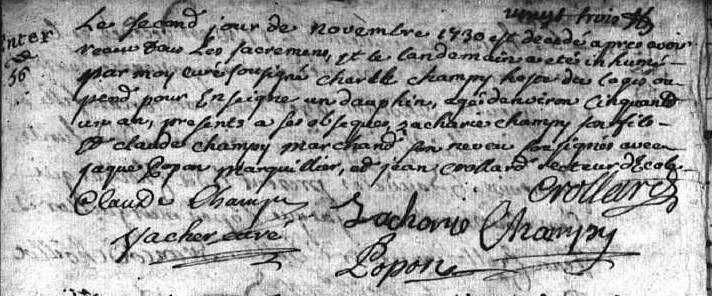 vingt trois
Enter
56
Le second jour de novembre 1730 est decedé apres avoir
receu tous Les sacremens, et le lendemain a eté inhumé
par moy curé soussigné Charle Champy hoste du logis ou
pend pour Enseigne un dauphin, agé denviron Cinquante
un an, presents a ses obseques Zacharie Champy son fils
et Claude Champy marchand son neveu soussignés avec
jaque Popon marguillier, et jean Crollard Recteur d'Ecole
Crollard
Claude Champy
Zacharie Champy
Vacher curé
Popon